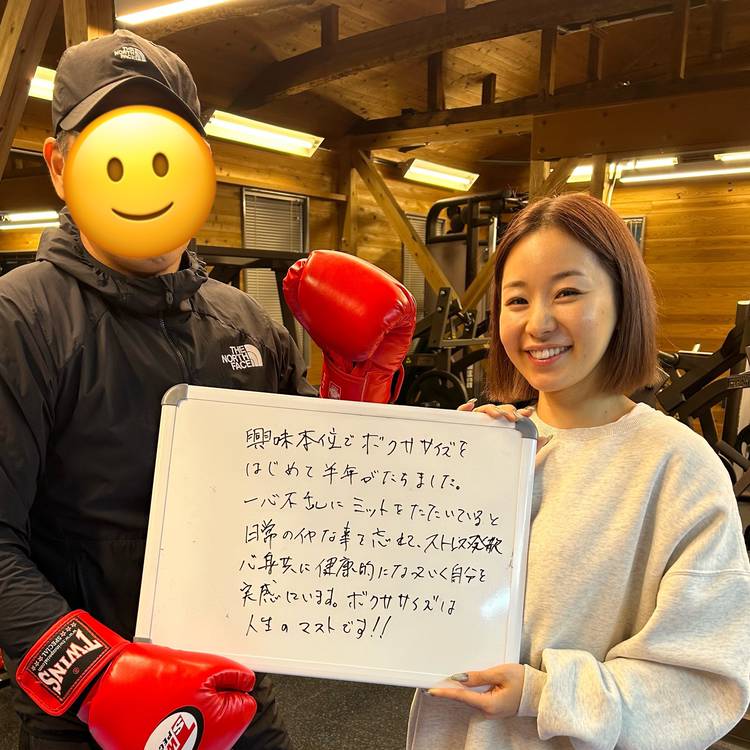 THE
NORTH
FACE
THE
NORTH
FACE
興味本位でボクササイズを
はじめて半年がたちました。
一心不乱にミットをたたいていると
日常のイヤな事て忘れて、ストレス発散
心身共に健康的になっていく自分を
実感しています。ボクササイズは
人生のマストです!!
TWINS
SPECIAL